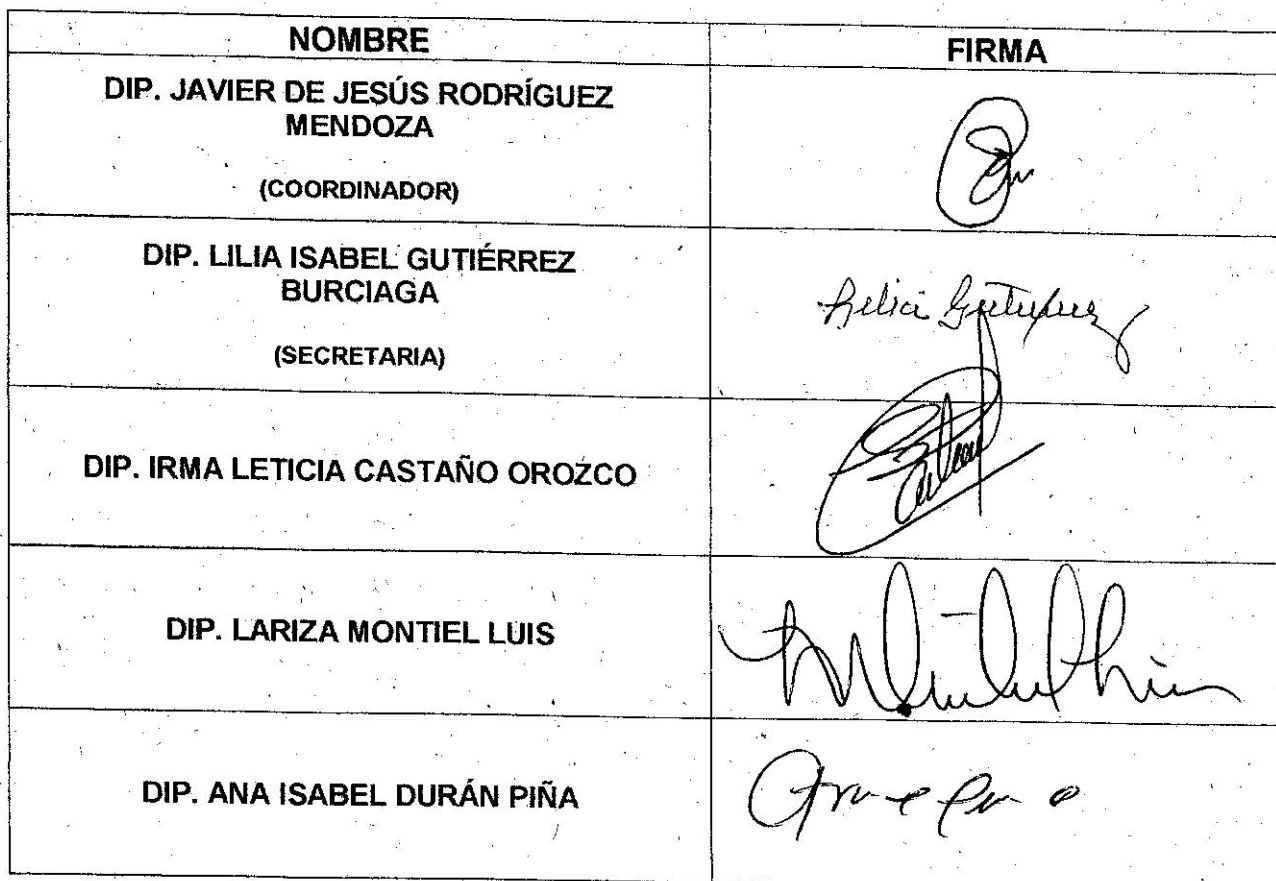 NOMBRE
FIRMA
DIP. JAVIER DE JESÚS RODRÍGUEZ
MENDOZA
(COORDINADOR)
DIP. LILIA ISABEL GUTIÉRREZ
BURCIAGA
(SECRETARIA)
Lilia Gutiérrez
DIP. IRMA LETICIA CASTAÑO OROZCO
DIP. LARIZA MONTIEL LUIS
DIP. ANA ISABEL DURÁN PIÑA